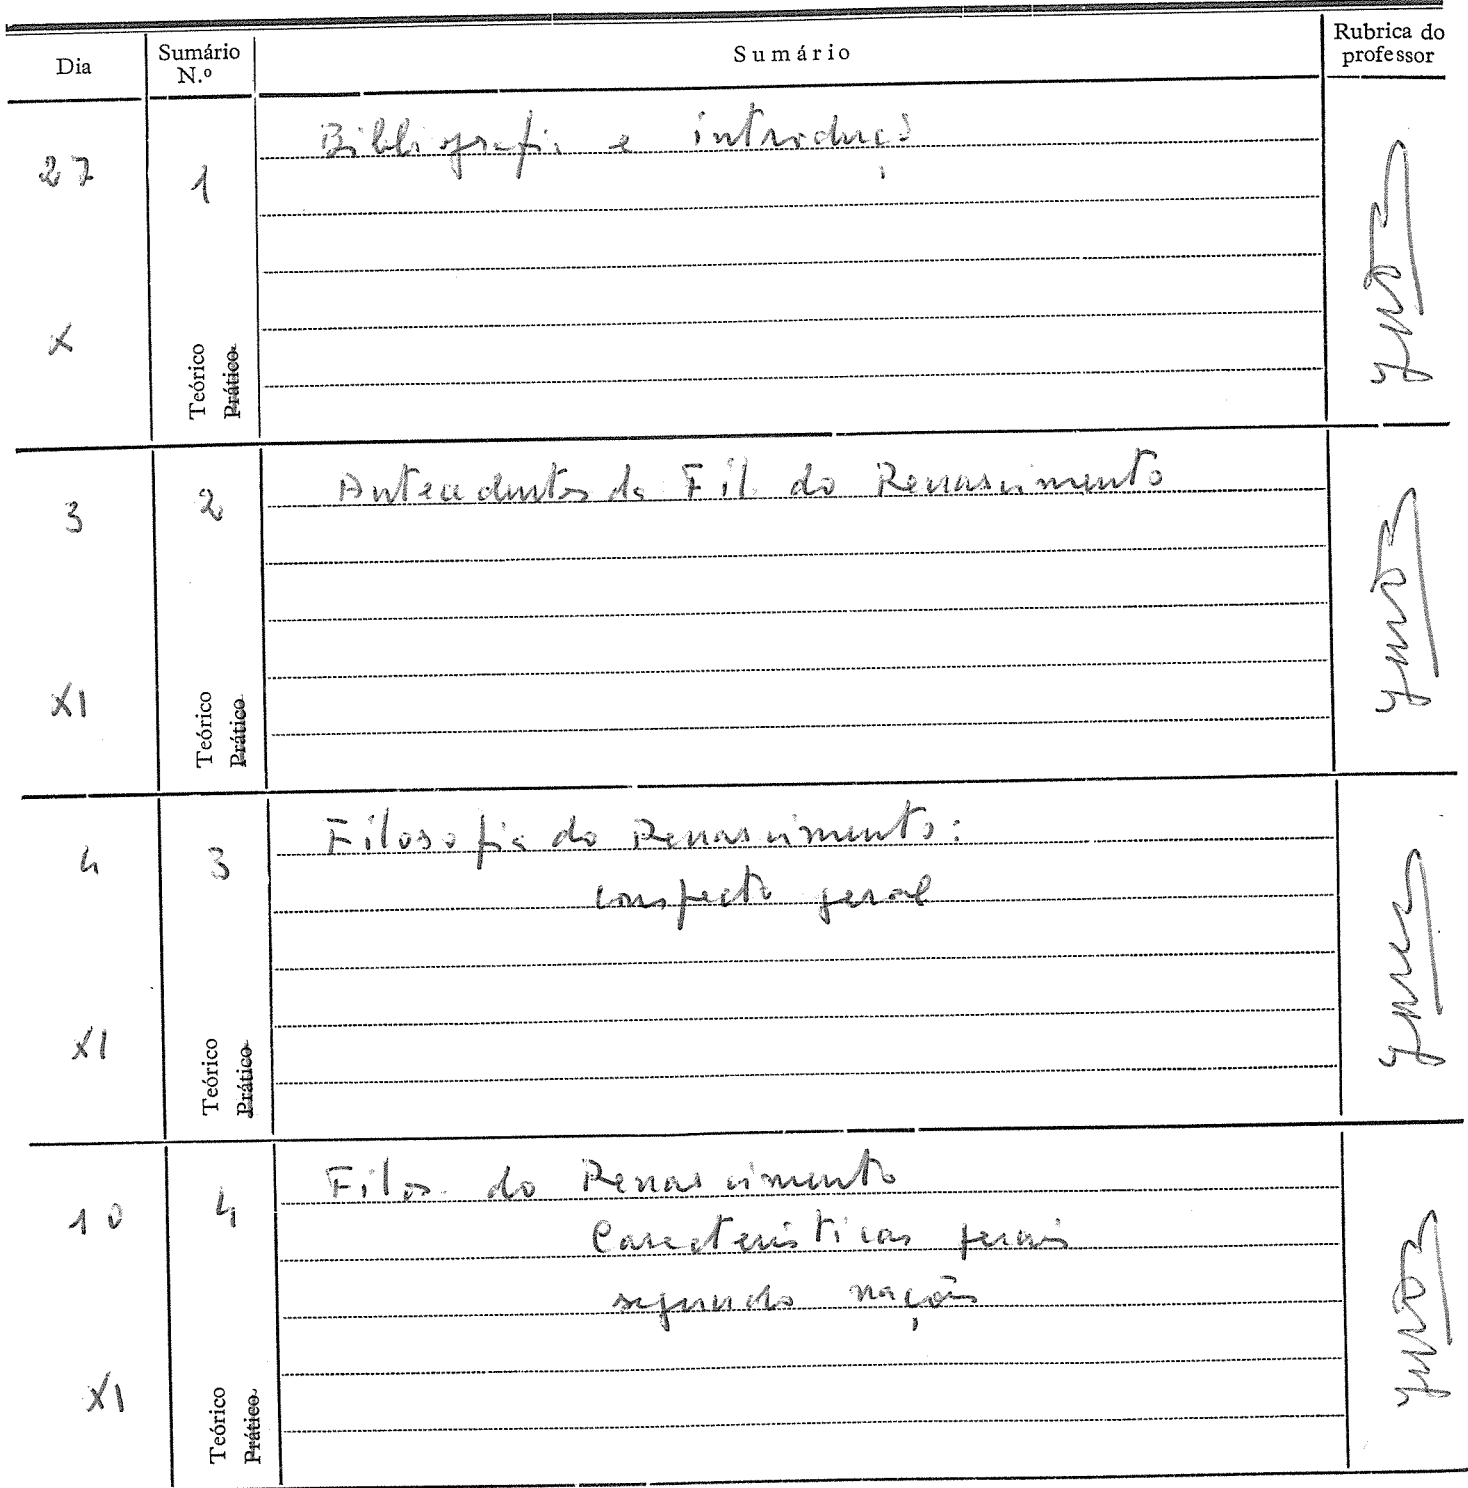 Dia Sumário N.º Sumário Rubrica do professor
27 1 Bibliografia e introdução
X Teórico Prático
3 2 Antecedentes da Fil. do Renascimento
XI Teórico Prático
4 3 Filosofia do Renascimento:
conspecto geral
XI Teórico Prático
10 4 Filos. do Renascimento
Características gerais
segundo nações
XI Teórico Prático